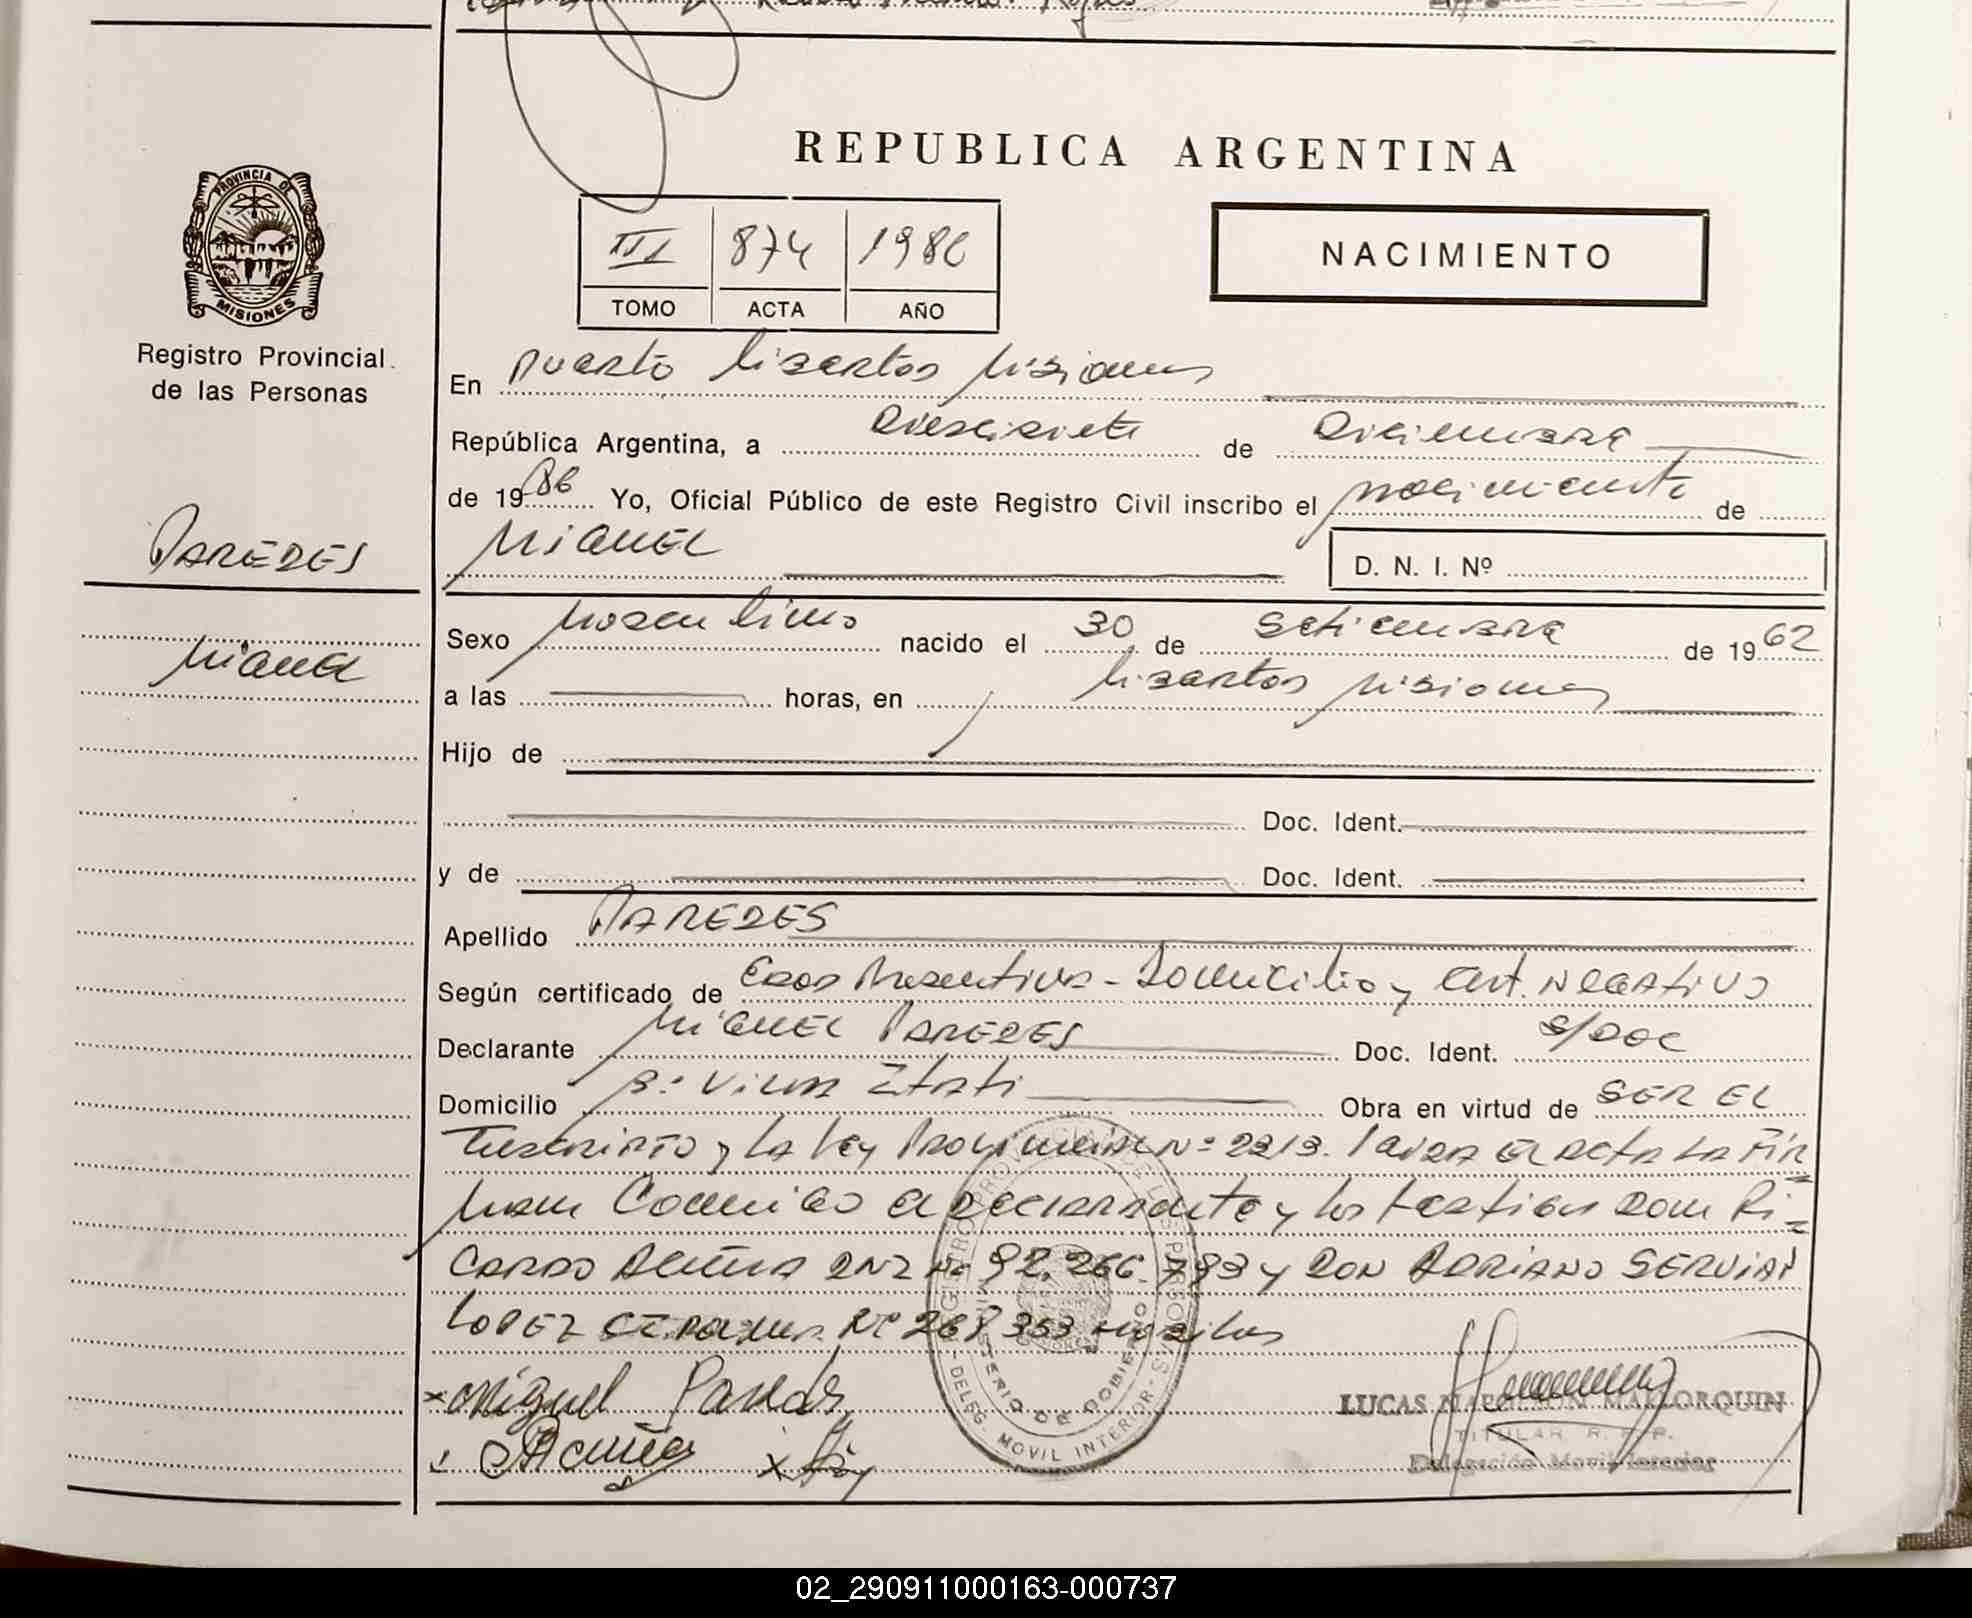 REPUBLICA ARGENTINA
PROVINCIA DE
MISIONES
Registro Provincial.
de las Personas
III 874 1986
TOMO ACTA AÑO
NACIMIENTO
En Puerto Libertad Misiones
República Argentina, a Diecisiete de Diciembre
de 1986 Yo, Oficial Público de este Registro Civil inscribo el nacimiento de
PAREDES
MIGUEL
D. N. I. Nº
Miguel
Sexo Masculino nacido el 30 de Setiembre de 1962
a las horas, en Libertad Misiones
Hijo de
Doc. Ident.
y de Doc. Ident.
Apellido PAREDES
Según certificado de Edad Presuntiva - Domicilio y Cert. Negativo
Declarante MIGUEL PAREDES Doc. Ident. S/DOC
Domicilio Bº Villa Itati Obra en virtud de SER EL
Inscripto y La Ley Provincial Nº 2213. Leida El Acta La Fir=
man Conmigo el Declarante y los testigos Don Ri=
cardo Acuña DNI Nº 92.266.793 y DON ADRIANO SERVIAN
LOPEZ Nº 268 353
Miguel Paredes
Acuña
REGISTRO PROVINCIAL DE LAS PERSONAS
MINISTERIO DE GOBIERNO
DELEG. MOVIL INTERIOR
LUCAS NAPOLEON MALLORQUIN
TITULAR R. P. P.
Delegación Movil Interior
02_290911000163-000737